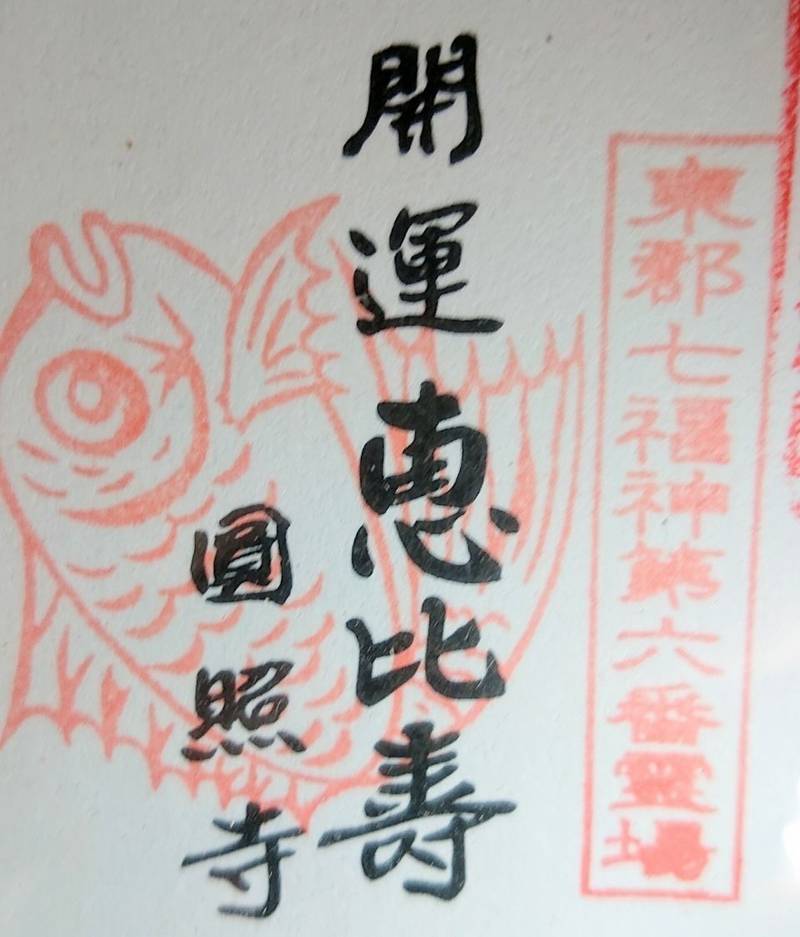 東郡七福神第六番霊場
開運恵比壽
圓照寺